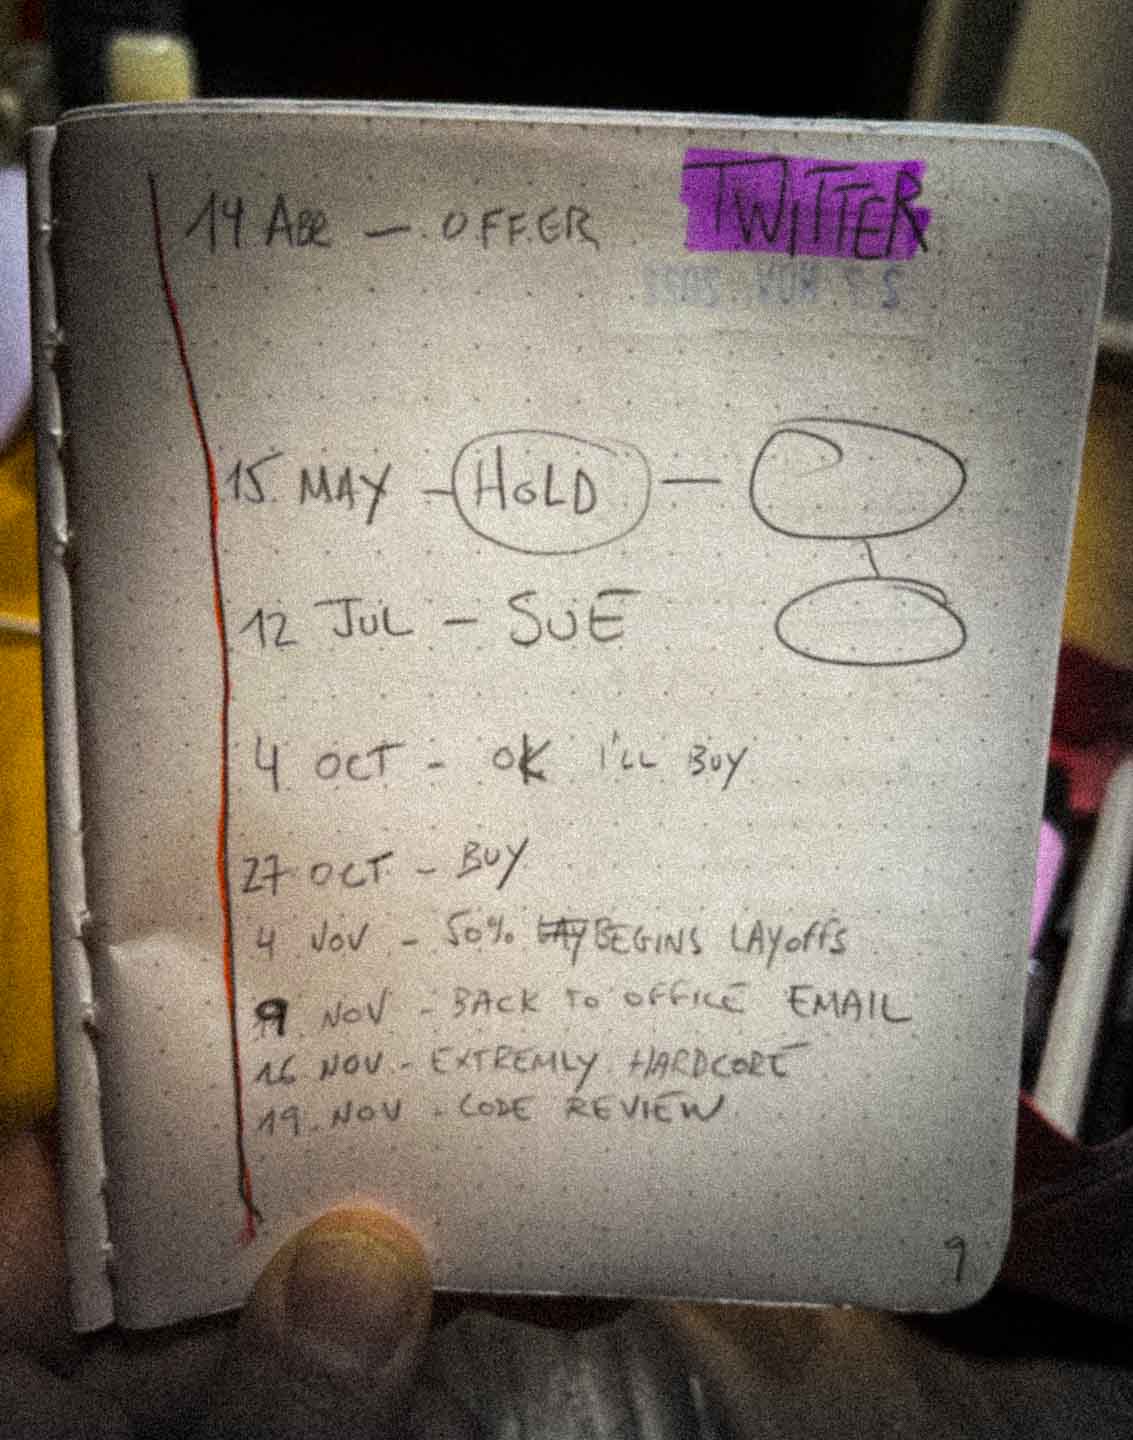 14 ABR - OFFER
TWITTER
15 MAY - HOLD -
12 JUL - SUE
4 OCT - OK I'LL BUY
27 OCT - BUY
4 NOV - 50% LAY BEGINS LAYOFFS
9 NOV - BACK TO OFFICE EMAIL
16 NOV - EXTREMLY HARDCORE
19 NOV - CODE REVIEW
9